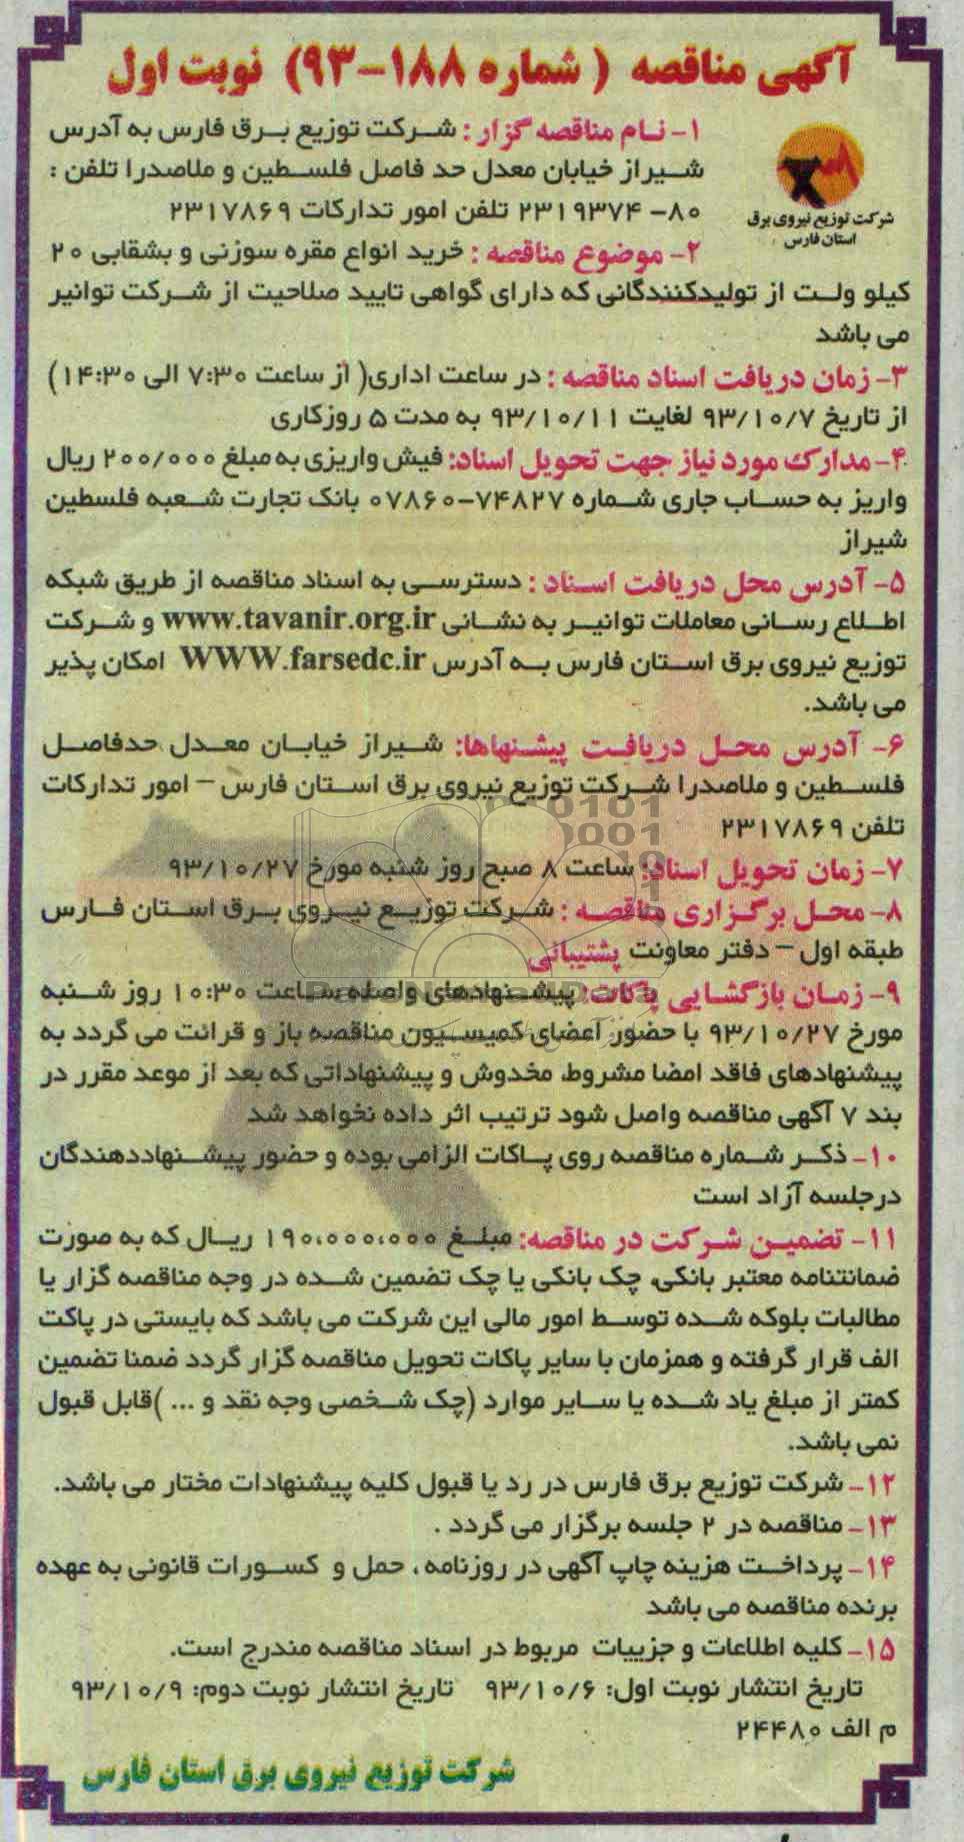 آگهی مناقصه (شماره ۱۸۸-۹۳) نوبت اول
شرکت توزیع نیروی برق
استان فارس
۱- نام مناقصه گزار : شرکت توزیع برق فارس به آدرس
شیراز خیابان معدل حد فاصل فلسطین و ملاصدرا تلفن :
۸۰- ۲۳۱۹۳۷۴ تلفن امور تدارکات ۲۳۱۷۸۶۹
۲- موضوع مناقصه : خرید انواع مقره سوزنی و بشقابی ۲۰
کیلو ولت از تولیدکنندگانی که دارای گواهی تایید صلاحیت از شرکت توانیر
می باشد
۳- زمان دریافت اسناد مناقصه : در ساعت اداری( از ساعت ۷:۳۰ الی ۱۴:۳۰)
از تاریخ ۹۳/۱۰/۷ لغایت ۹۳/۱۰/۱۱ به مدت ۵ روزکاری
۴- مدارک مورد نیاز جهت تحویل اسناد: فیش واریزی به مبلغ ۲۰۰/۰۰۰ ریال
واریز به حساب جاری شماره ۷۴۸۲۷-۰۷۸۶۰ بانک تجارت شعبه فلسطین
شیراز
۵- آدرس محل دریافت اسناد : دسترسی به اسناد مناقصه از طریق شبکه
اطلاع رسانی معاملات توانیر به نشانی www.tavanir.org.ir و شرکت
توزیع نیروی برق استان فارس به آدرس WWW.farsedc.ir امکان پذیر
می باشد.
۶- آدرس محل دریافت پیشنهاها: شیراز خیابان معدل حدفاصل
فلسطین و ملاصدرا شرکت توزیع نیروی برق استان فارس – امور تدارکات
تلفن ۲۳۱۷۸۶۹
۷- زمان تحویل اسناد: ساعت ۸ صبح روز شنبه مورخ ۹۳/۱۰/۲۷
۸- محل برگزاری مناقصه : شرکت توزیع نیروی برق استان فارس
طبقه اول – دفتر معاونت پشتیبانی
۹- زمان بازگشایی پاکات: پیشنهادهای واصله ساعت ۱۰:۳۰ روز شنبه
مورخ ۹۳/۱۰/۲۷ با حضور اعضای کمیسیون مناقصه باز و قرائت می گردد به
پیشنهادهای فاقد امضا مشروط، مخدوش و پیشنهاداتی که بعد از موعد مقرر در
بند ۷ آگهی مناقصه واصل شود ترتیب اثر داده نخواهد شد
۱۰- ذکر شماره مناقصه روی پاکات الزامی بوده و حضور پیشنهاددهندگان
درجلسه آزاد است
۱۱- تضمین شرکت در مناقصه: مبلغ ۱۹۰،۰۰۰،۰۰۰ ریال که به صورت
ضمانتنامه معتبر بانکی، چک بانکی یا چک تضمین شده در وجه مناقصه گزار یا
مطالبات بلوکه شده توسط امور مالی این شرکت می باشد که بایستی در پاکت
الف قرار گرفته و همزمان با سایر پاکات تحویل مناقصه گزار گردد ضمنا تضمین
کمتر از مبلغ یاد شده یا سایر موارد (چک شخصی وجه نقد و ... )قابل قبول
نمی باشد.
۱۲- شرکت توزیع برق فارس در رد یا قبول کلیه پیشنهادات مختار می باشد.
۱۳- مناقصه در ۲ جلسه برگزار می گردد .
۱۴- پرداخت هزینه چاپ آگهی در روزنامه ، حمل و کسورات قانونی به عهده
برنده مناقصه می باشد
۱۵- کلیه اطلاعات و جزییات مربوط در اسناد مناقصه مندرج است.
تاریخ انتشار نوبت اول: ۹۳/۱۰/۶ تاریخ انتشار نوبت دوم: ۹۳/۱۰/۹
م الف ۲۴۴۸۰
شرکت توزیع نیروی برق استان فارس